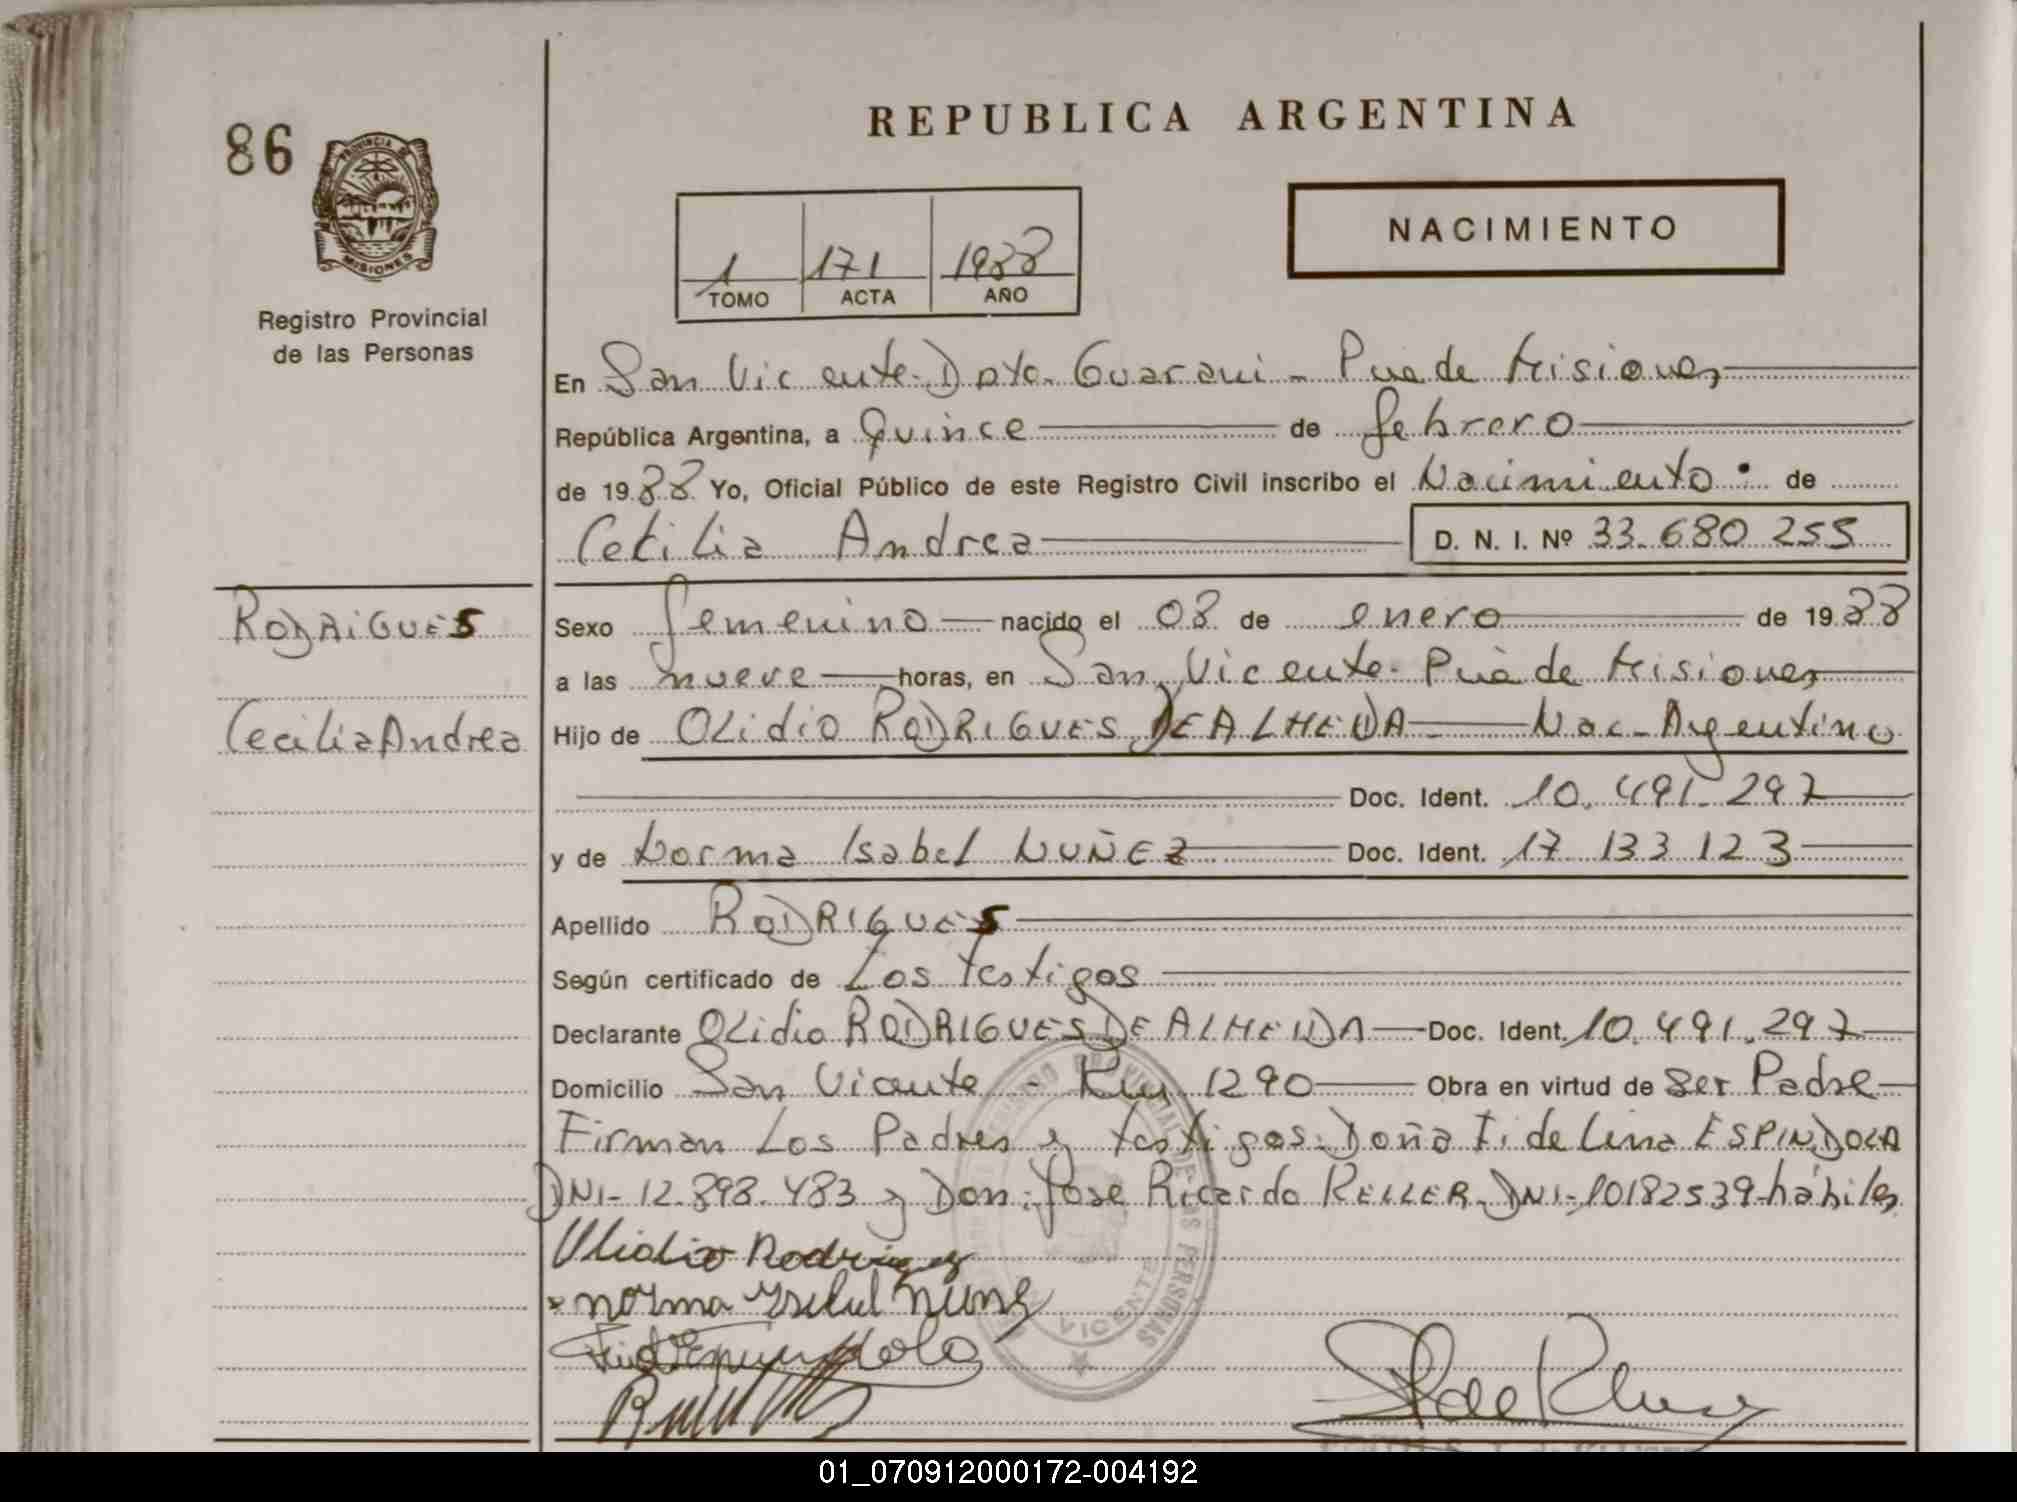 REPUBLICA ARGENTINA
86
PROVINCIA DE
MISIONES
Registro Provincial
de las Personas
NACIMIENTO
1 171 1988
TOMO ACTA AÑO
En San Vicente-Dpto. Guarani - Pcia de Misiones
República Argentina, a Quince de febrero
de 1988 Yo, Oficial Público de este Registro Civil inscribo el Nacimiento: de
Cecilia Andrea D. N. I. Nº 33.680 255
RODRIGUES
Cecilia Andrea
Sexo femenino nacido el 08 de enero de 1988
a las nueve horas, en San Vicente- Pcia de Misiones
Hijo de OLidio RODRIGUES DE ALMEIDA Nac- Argentino
Doc. Ident. 10. 491. 297
y de Norma Isabel NUÑEZ Doc. Ident. 17 133 123
Apellido RODRIGUES
Según certificado de Los testigos
Declarante OLidio RODRIGUES DE ALMEIDA Doc. Ident. 10.491.297
Domicilio San Vicente - Km 1290 Obra en virtud de ser Padre
Firman Los Padres y testigos: Doña Fidelina ESPINDOLA
DNI- 12.898.483 y Don: Jose Ricardo KELLER DNI-10182539-hábiles
Olidio Rodriguez
norma Isabel nunes
VICENTE
01_070912000172-004192